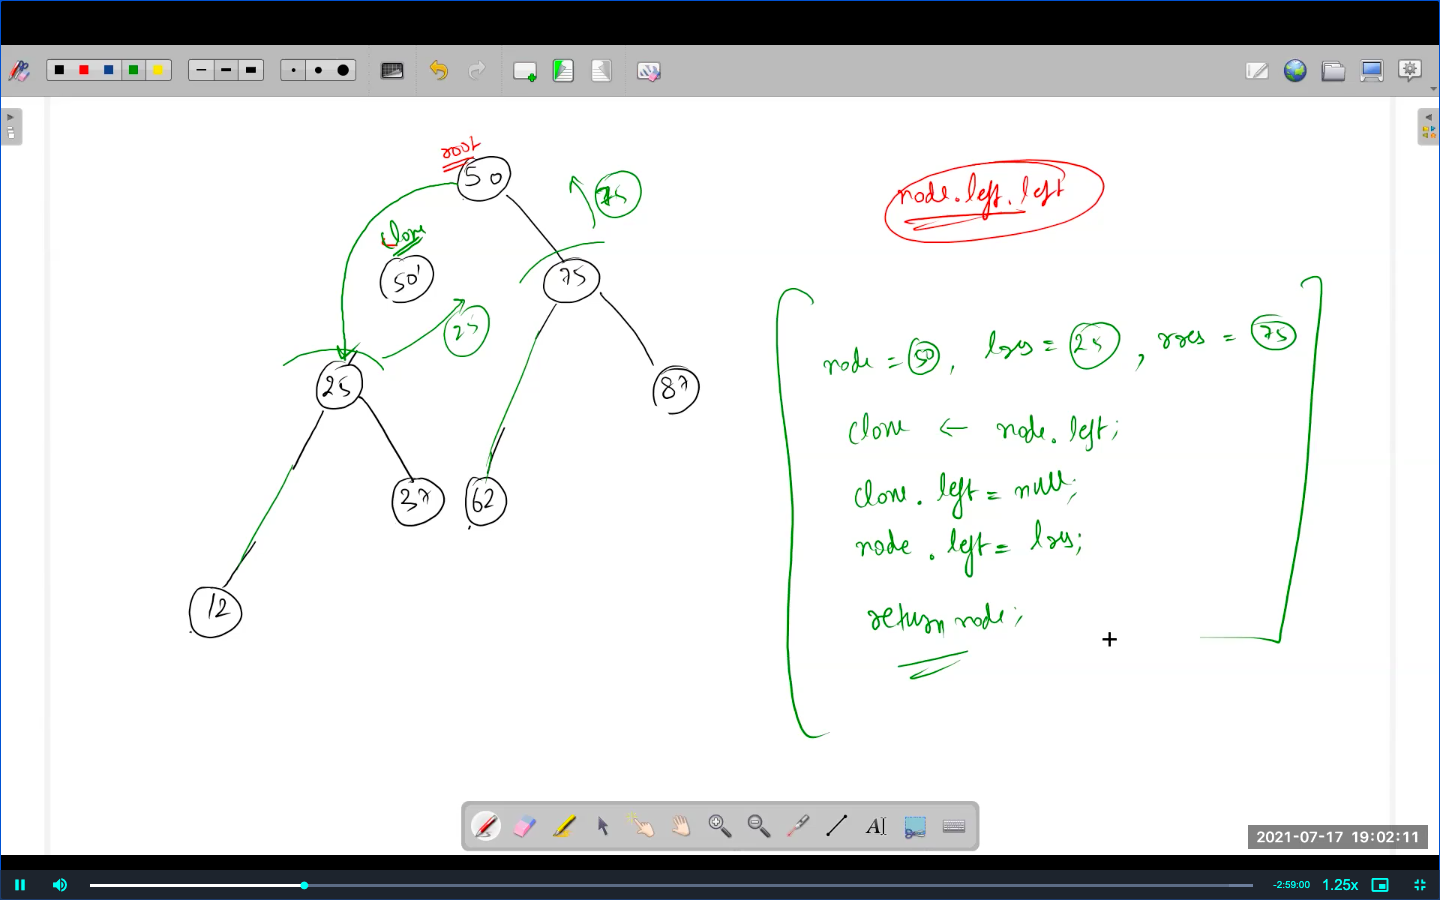 root
50
75
clone
50'
75
25
25
87
37
62
12
node.left.left
node = 50, lres = 25, rres = 75
clone ← node.left;
clone.left = null;
node.left = lres;
return node;
AI
2021-07-17 19:02:11
-2:59:00 1.25x